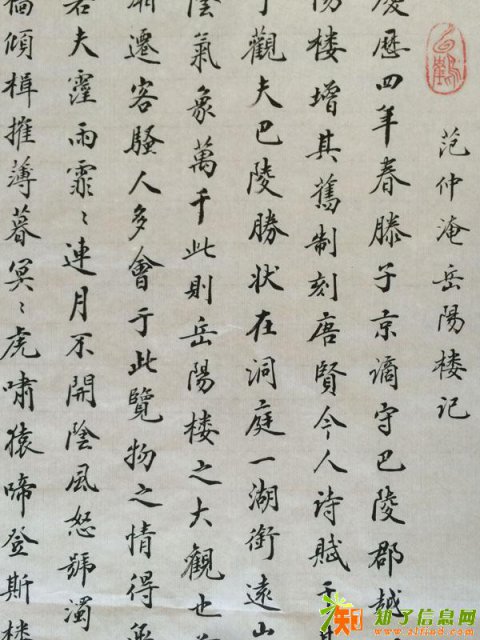 范仲淹岳陽楼记
慶歷四年春滕子京謫守巴陵郡越
陽楼增其舊制刻唐賢今人詩賦于
觀夫巴陵勝状在洞庭一湖銜遠山
陰氣象萬千此則岳陽楼之大觀也
湘遷客騷人多會于此覽物之情得無
若夫霪雨霏〻連月不開陰風怒號濁
檣傾楫摧薄暮冥〻虎嘯猿啼登斯楼
知了信息网
www.alfind.com